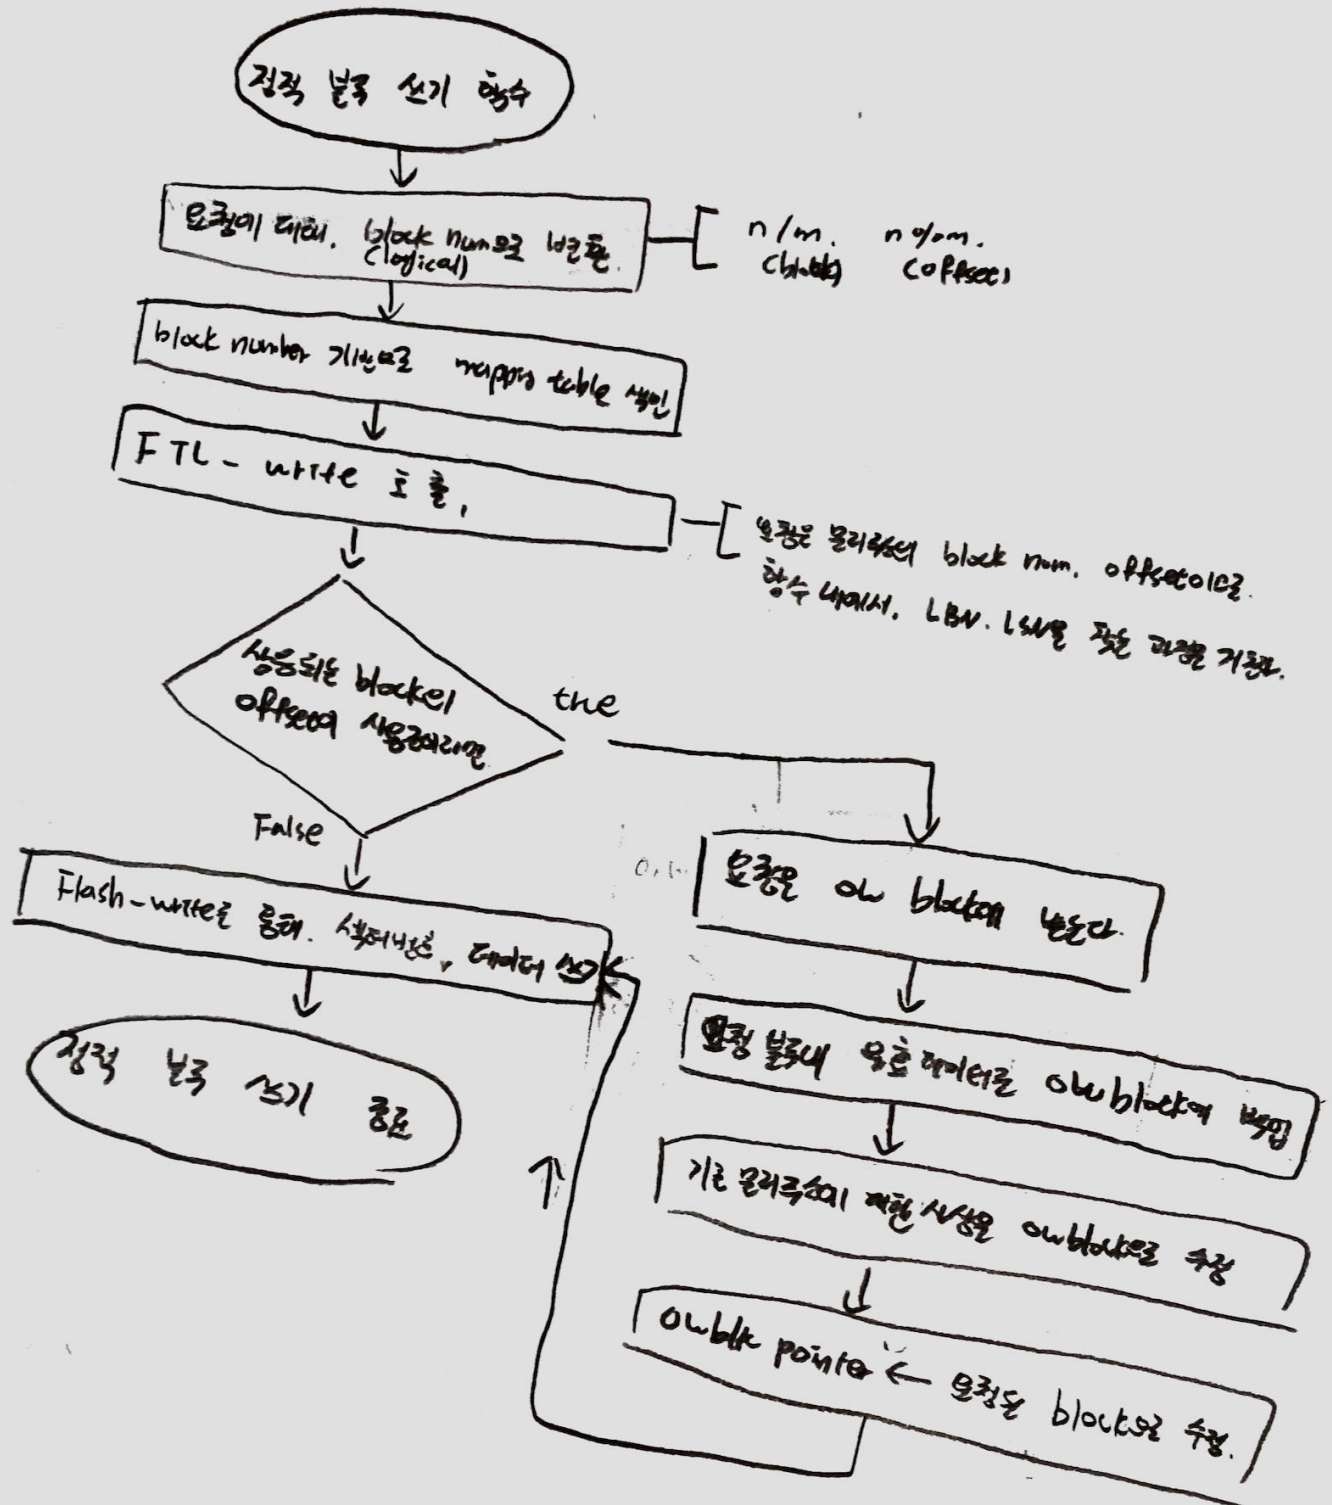 정적 블록 쓰기 함수
요청에 대해. block num으로 변환.
(logical)
n/m. n%m.
(block) (offset)
block number 기반으로 mapping table 색인
FTL - write 호출,
요청은 물리주소의 block num. offset이므로.
함수 내에서. LBN. LSN을 찾는 과정을 거친다.
상응되는 block의
offset이 사용중이라면
true
False
Flash-write를 통해. 섹터번호, 데이터 쓰기
정적 블록 쓰기 종료
요청을 ow block에 넣는다.
요청 블록내 유효데이터를 ow block에 백업
기존 물리주소에 대한 사상을 ow block으로 수정
ow blk pointer ← 요청된 block으로 수정.